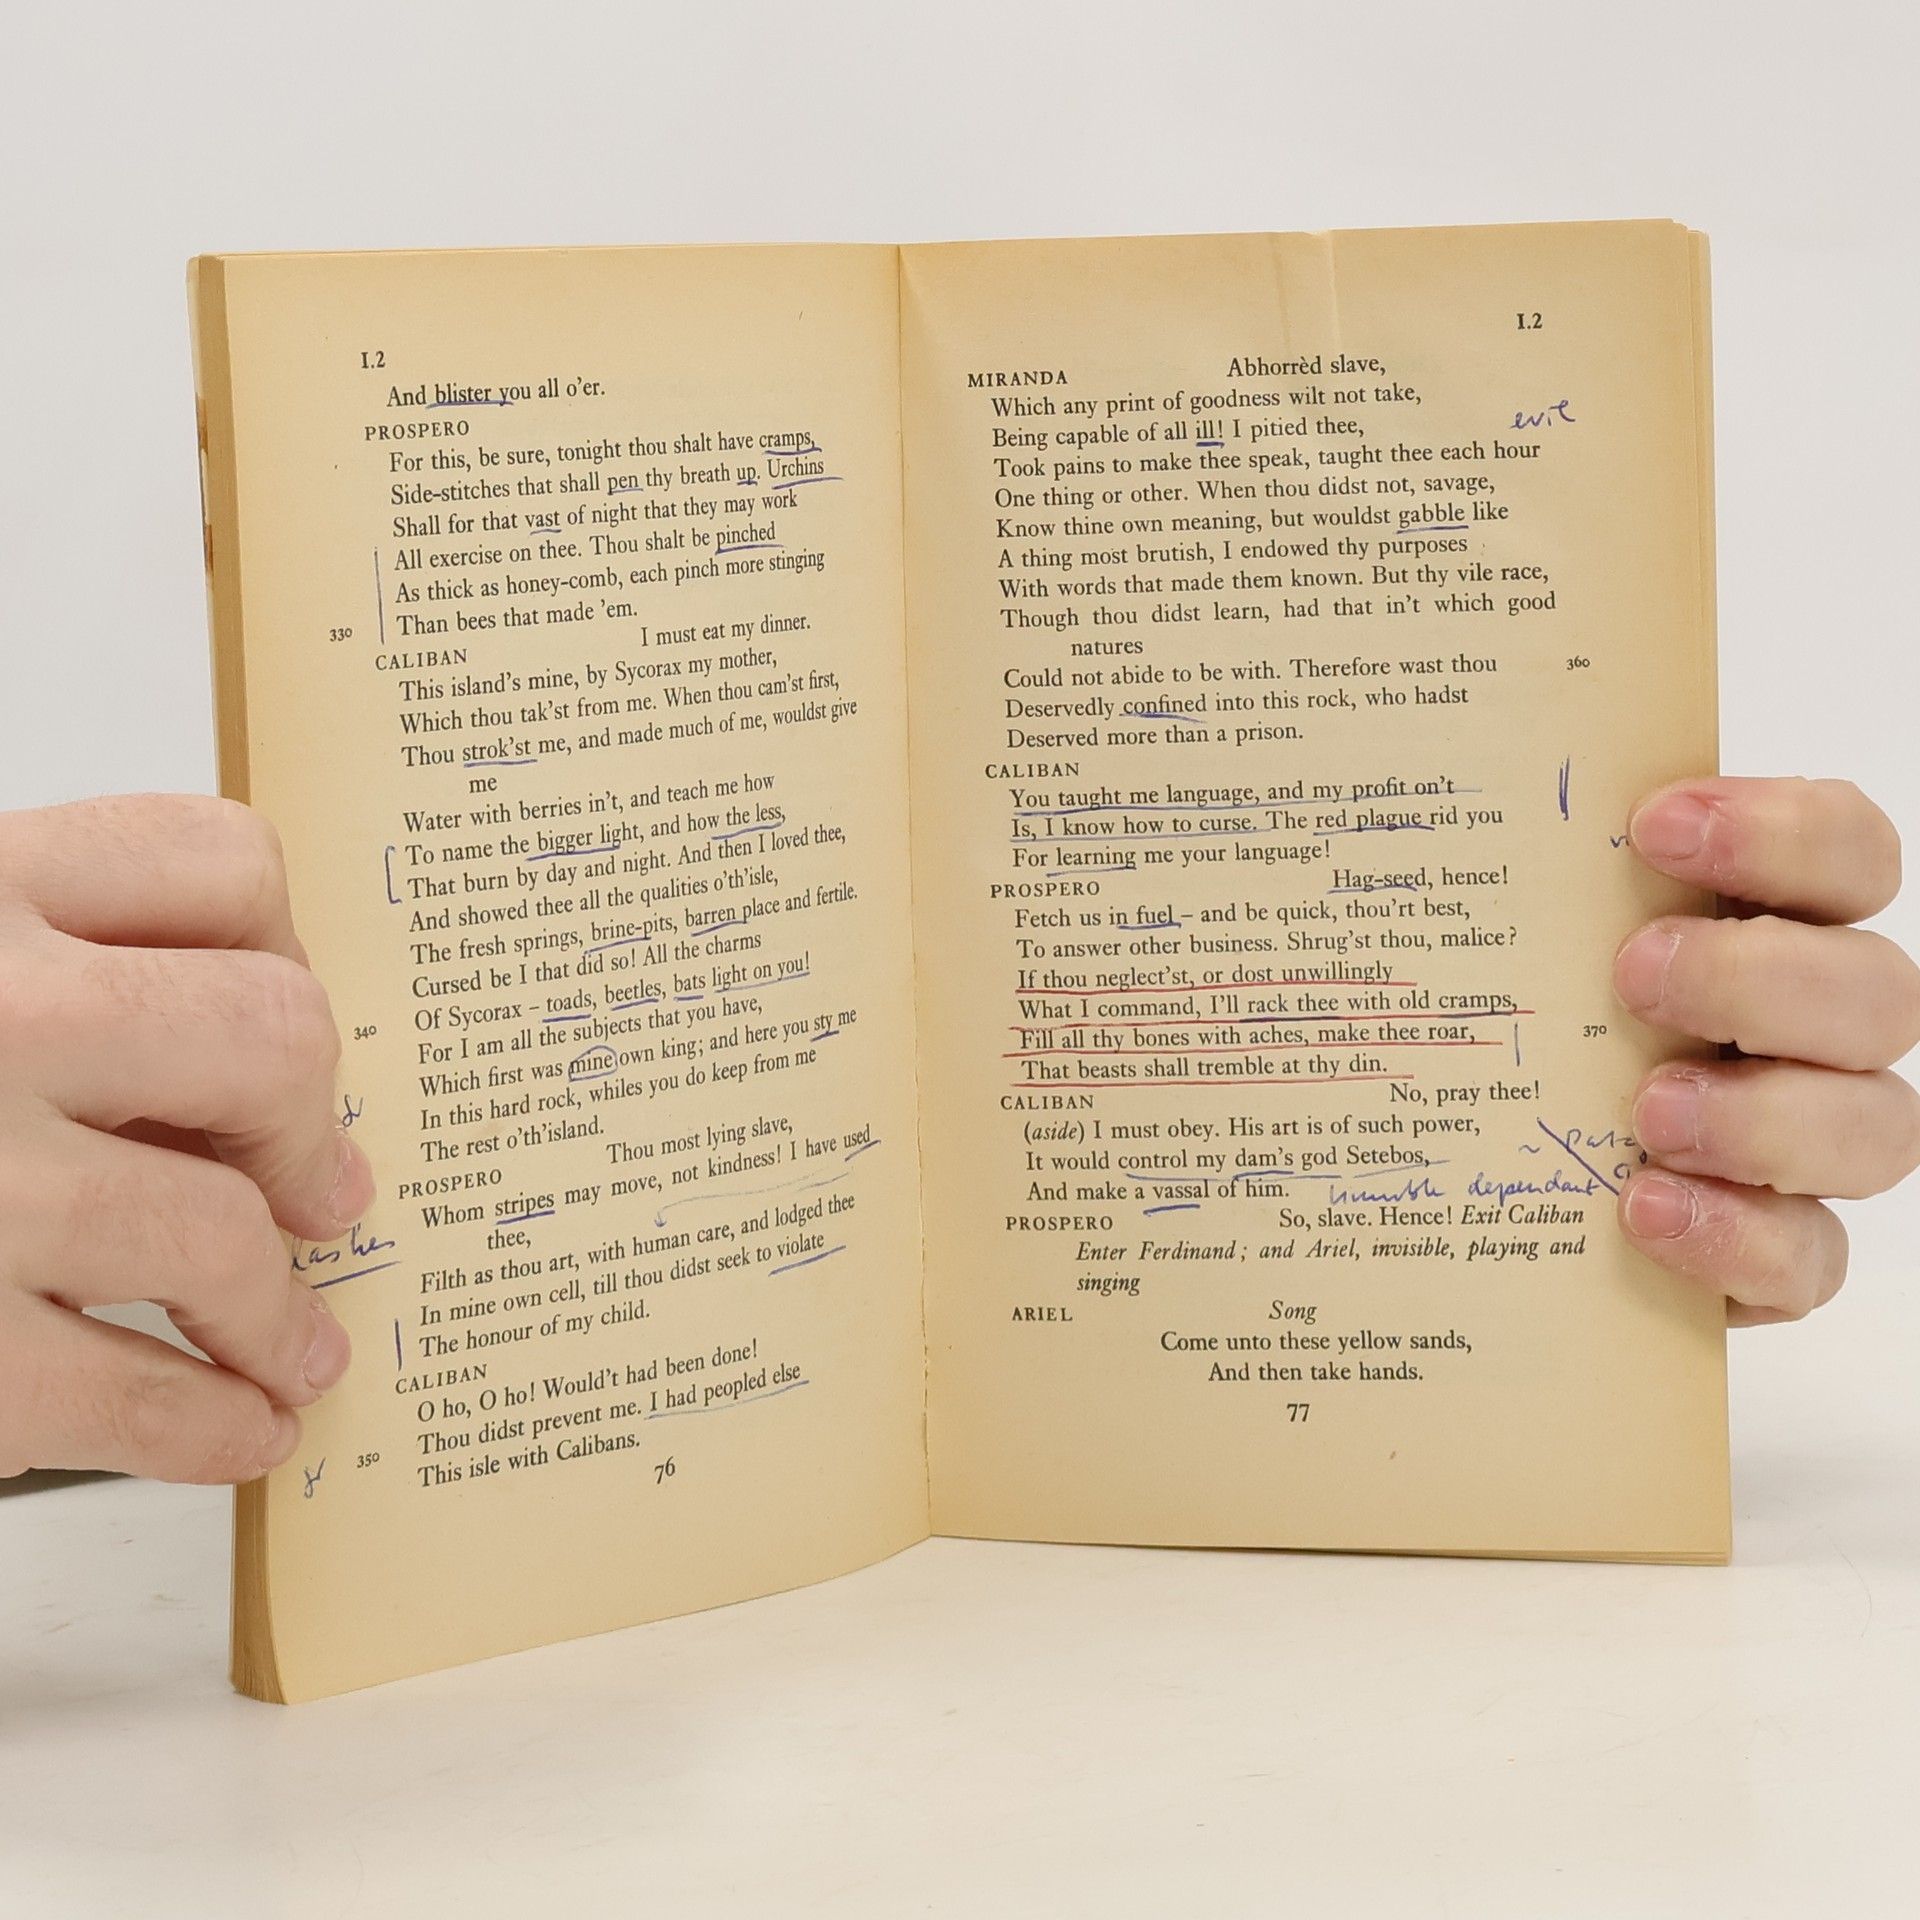 I.2
And blister you all o'er.
PROSPERO
For this, be sure, tonight thou shalt have cramps,
Side-stitches that shall pen thy breath up. Urchins
Shall for that vast of night that they may work
All exercise on thee. Thou shalt be pinched
As thick as honey-comb, each pinch more stinging
330 Than bees that made 'em.
CALIBAN I must eat my dinner.
This island's mine, by Sycorax my mother,
Which thou tak'st from me. When thou cam'st first,
Thou strok'st me, and made much of me, wouldst give
me
Water with berries in't, and teach me how
To name the bigger light, and how the less,
That burn by day and night. And then I loved thee,
And showed thee all the qualities o'th'isle,
The fresh springs, brine-pits, barren place and fertile.
Cursed be I that did so! All the charms
340 Of Sycorax – toads, beetles, bats light on you!
For I am all the subjects that you have,
Which first was mine own king; and here you sty me
In this hard rock, whiles you do keep from me
The rest o'th'island.
PROSPERO Thou most lying slave,
Whom stripes may move, not kindness! I have used
thee,
lashes
Filth as thou art, with human care, and lodged thee
In mine own cell, till thou didst seek to violate
The honour of my child.
CALIBAN
O ho, O ho! Would't had been done!
Thou didst prevent me. I had peopled else
350 This isle with Calibans.
76
I.2
MIRANDA Abhorrèd slave,
Which any print of goodness wilt not take,
evil
Being capable of all ill! I pitied thee,
Took pains to make thee speak, taught thee each hour
One thing or other. When thou didst not, savage,
Know thine own meaning, but wouldst gabble like
A thing most brutish, I endowed thy purposes
With words that made them known. But thy vile race,
Though thou didst learn, had that in't which good
natures
Could not abide to be with. Therefore wast thou 360
Deservedly confined into this rock, who hadst
Deserved more than a prison.
CALIBAN
You taught me language, and my profit on't
Is, I know how to curse. The red plague rid you
For learning me your language!
PROSPERO Hag-seed, hence!
Fetch us in fuel – and be quick, thou'rt best,
To answer other business. Shrug'st thou, malice?
If thou neglect'st, or dost unwillingly
What I command, I'll rack thee with old cramps,
Fill all thy bones with aches, make thee roar, 370
That beasts shall tremble at thy din.
CALIBAN No, pray thee!
(aside) I must obey. His art is of such power,
It would control my dam's god Setebos,
And make a vassal of him. humble dependant
PROSPERO So, slave. Hence! Exit Caliban
Enter Ferdinand; and Ariel, invisible, playing and
singing
ARIEL Song
Come unto these yellow sands,
And then take hands.
77